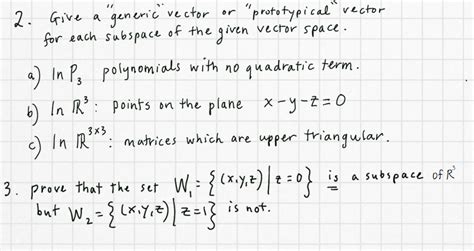 2. Give a "generic" vector or "prototypical" vector
for each subspace of the given vector space.
a) In P₃ polynomials with no quadratic term.
b) In ℝ³: points on the plane x-y-z=0
c) In ℝ³ˣ³: matrices which are upper triangular.
3. prove that the set W₁ = {(x,y,z) | z=0} is a subspace of R³
but W₂ = {(x,y,z) | z=1} is not.